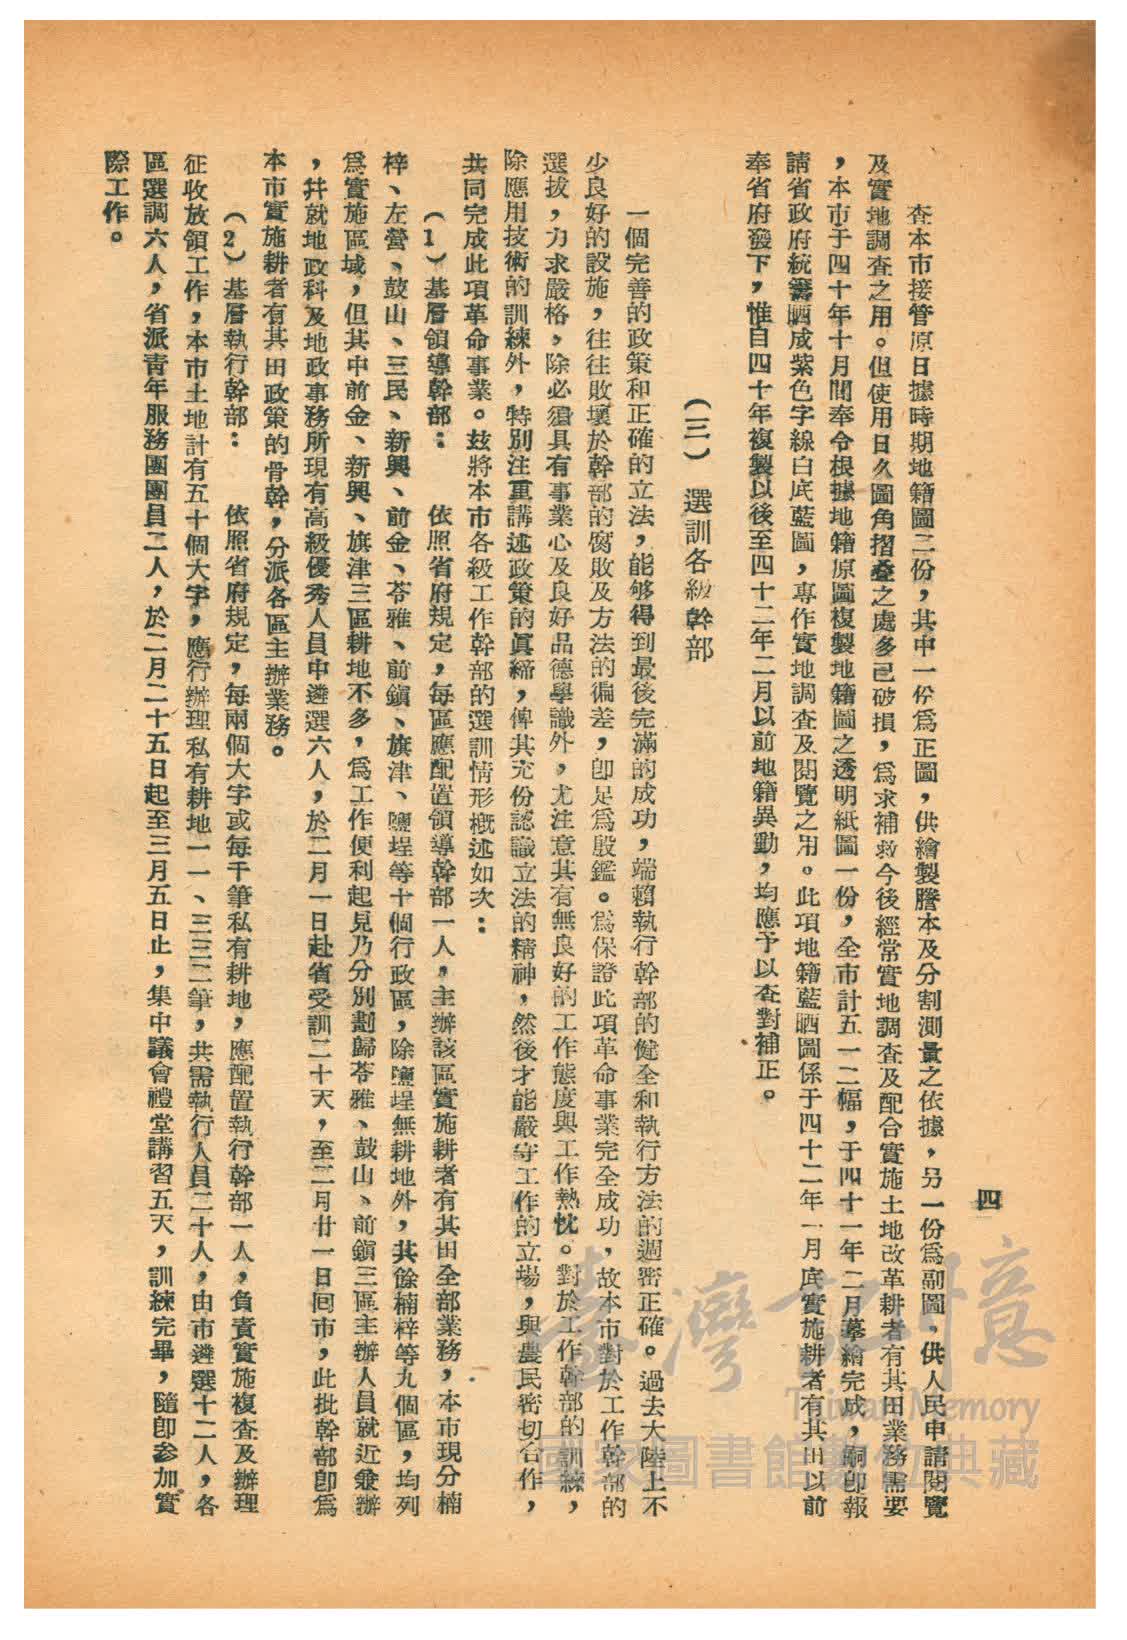 四
查本市接管原日據時期地籍圖二份，其中一份爲正圖，供繪製謄本及分割測量之依據，另一份爲副圖，供人民申請閱覽
及實地調查之用。但使用日久圖角摺叠之處多已破損，爲求補救今後經常實地調查及配合實施土地改革耕者有其田業務需要
，本市于四十年十月間奉令根據地籍原圖複製地籍圖之透明紙圖一份，全市計五一二幅，于四十一年二月摹繪完成，嗣卽報
請省政府統籌晒成紫色字線白底藍圖，專作實地調查及閱覽之用。此項地籍藍晒圖係于四十二年一月底實施耕者有其田以前
奉省府發下，惟自四十年複製以後至四十二年二月以前地籍異動，均應予以查對補正。
（三）選訓各級幹部
一個完善的政策和正確的立法，能够得到最後完滿的成功，端賴執行幹部的健全和執行方法的週密正確。過去大陸上不
少良好的設施，往往敗壞於幹部的腐敗及方法的偏差，卽足爲殷鑑。爲保證此項革命事業完全成功，故本市對於工作幹部的
選拔，力求嚴格，除必須具有事業心及良好品德學識外，尤注意其有無良好的工作態度與工作熱忱。對於工作幹部的訓練，
除應用技術的訓練外，特別注重講述政策的眞締，俾其充份認識立法的精神，然後才能嚴守工作的立場，與農民密切合作，
共同完成此項革命事業。玆將本市各級工作幹部的選訓情形概述如次：
（1）基層領導幹部：　依照省府規定，每區應配置領導幹部一人，主辦該區實施耕者有其田全部業務，本市現分楠
梓、左營、鼓山、三民、新興、前金、苓雅、前鎭、旗津、鹽埕等十個行政區，除鹽埕無耕地外，其餘楠梓等九個區，均列
爲實施區域，但其中前金、新興、旗津三區耕地不多，爲工作便利起見乃分別劃歸苓雅、鼓山、前鎭三區主辦人員就近兼辦
，幷就地政科及地政事務所現有高級優秀人員中遴選六人，於二月一日赴省受訓二十天，至二月廿一日回市，此批幹部卽爲
本市實施耕者有其田政策的骨幹，分派各區主辦業務。
（2）基層執行幹部：　依照省府規定，每兩個大字或每千筆私有耕地，應配置執行幹部一人，負責實施複查及辦理
征收放領工作，本市土地計有五十個大字，應行辦理私有耕地一一、三三二筆，共需執行人員二十人，由市遴選十二人，各
區選調六人，省派靑年服務團團員二人，於二月二十五日起至三月五日止，集中議會禮堂講習五天，訓練完畢，隨卽參加實
際工作。
臺灣記憶
Taiwan Memory
國家圖書館數位典藏